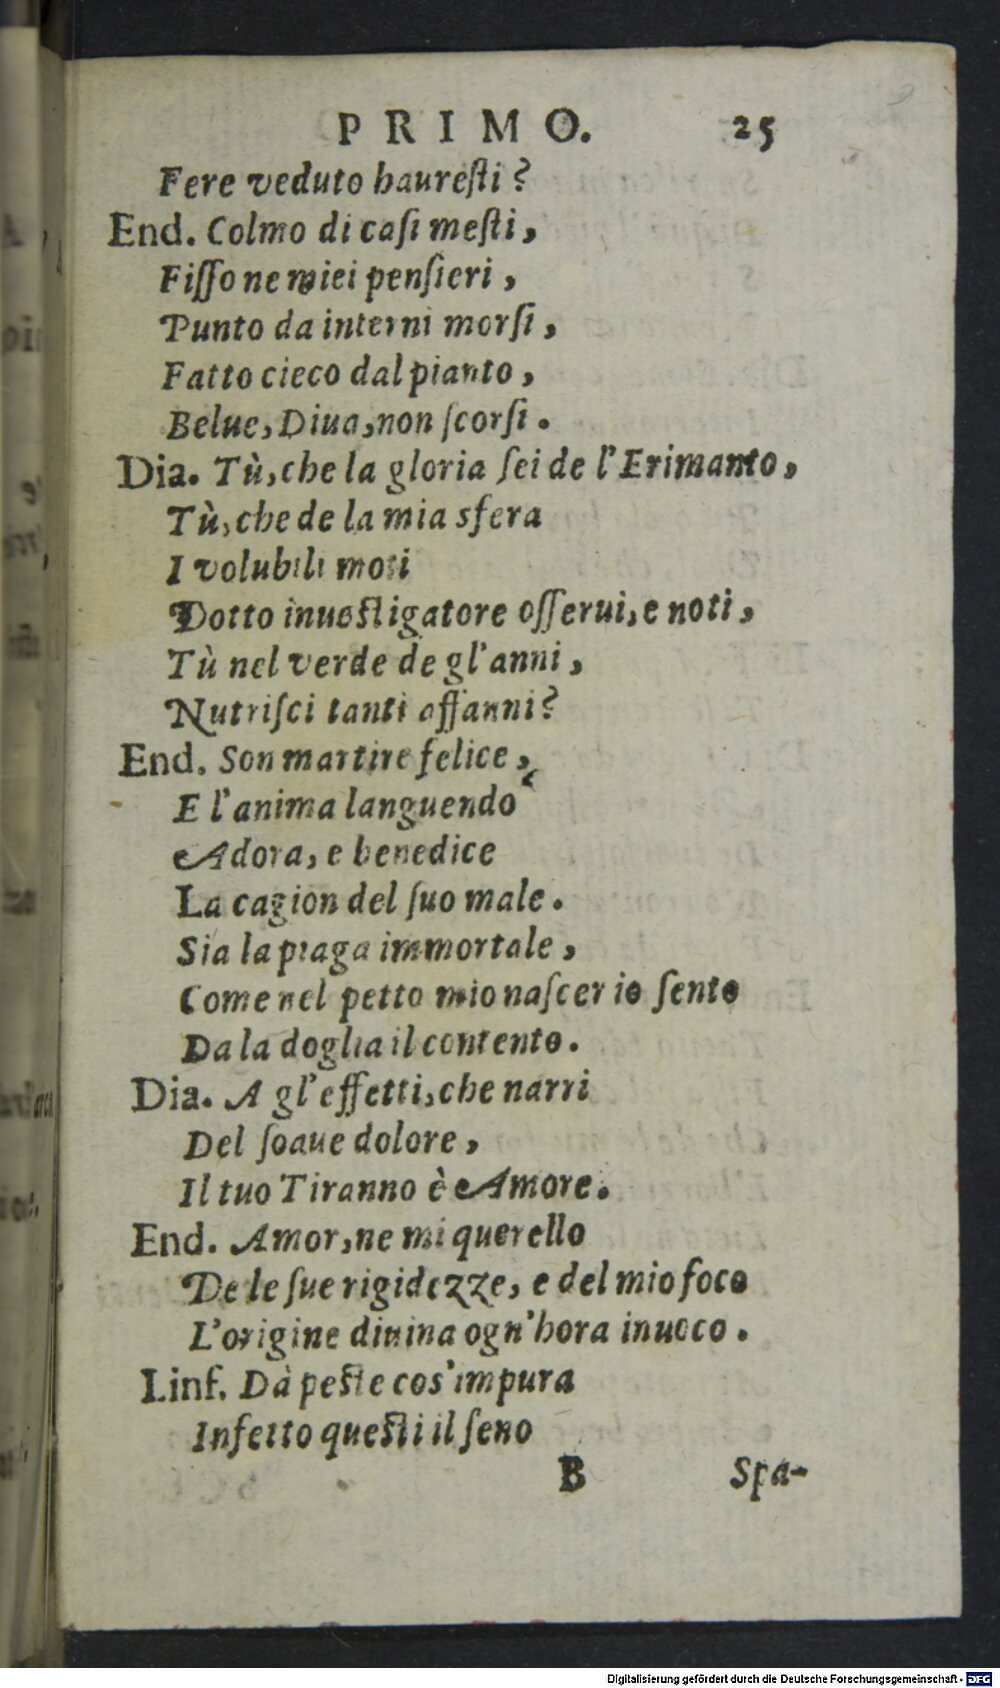 PRIMO. 25
Fere veduto haureſti?
End. Colmo di caſi meſti,
Fiſſo ne miei penſieri,
Punto da interni morſi,
Fatto cieco dal pianto,
Belue, Diua, non ſcorſi.
Dia. Tù, che la gloria ſei de l'Erimanto,
Tù, che de la mia sfera
I volubili moti
Dotto inueſtigatore oſſerui, e noti,
Tù nel verde de gl'anni,
Nutriſci tanti affanni?
End. Son martire felice,
E l'anima languendo
Adora, e benedice
La cagion del ſuo male.
Sia la piaga immortale,
Come nel petto mio naſcer io ſento
Da la doglia il contento.
Dia. A gl'effetti, che narri
Del ſoaue dolore,
Il tuo Tiranno è Amore.
End. Amor, ne mi querello
De le ſue rigidezze, e del mio foco
L'origine diuina ogn'hora inuoco.
Linf. Dà peſte cos'impura
Infetto queſti il ſeno
B Spa-
Digitalisierung gefördert durch die Deutsche Forschungsgemeinschaft - DFG